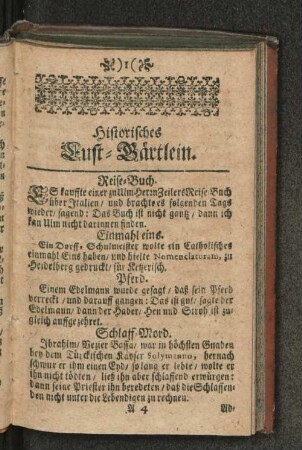 )1(
Historisches
Lust-Gärtlein.
Reise-Buch.
ES kauffte einer zu Ulm Herrn Zeilers Reise Buch
über Italien/ und brachte es folgenden Tags
wieder/ sagend: Das Buch ist nicht gantz/ dann ich
kan Ulm nicht darinnen finden.
Einmahl eins.
Ein Dorff-Schulmeister wolte ein Catholisches
einmahl Eins haben/ und hielte Nomenclaturam, zu
Heidelberg gedruckt/ für Ketzerisch.
Pferd.
Einem Edelmann wurde gesagt/ daß sein Pferd
verreckt/ und darauff gangen: Das ist gut/ sagte der
Edelmann/ dann der Haber/ Heu und Stroh ist zu-
gleich auffgezehret.
Schlaff-Mord.
Ibrahim/ Vezier Bassa/ war in höchsten Gnaden
bey dem Türckischen Kayser Solymanno, hernach
schwur er ihm einen Eyd/ so lang er lebte/ wolte er
ihn nicht tödten/ ließ ihn aber schlaffend erwürgen:
dann seine Priester ihn beredeten/ daß die Schlaffen-
den nicht unter die Lebendigen zu rechnen.
A 4